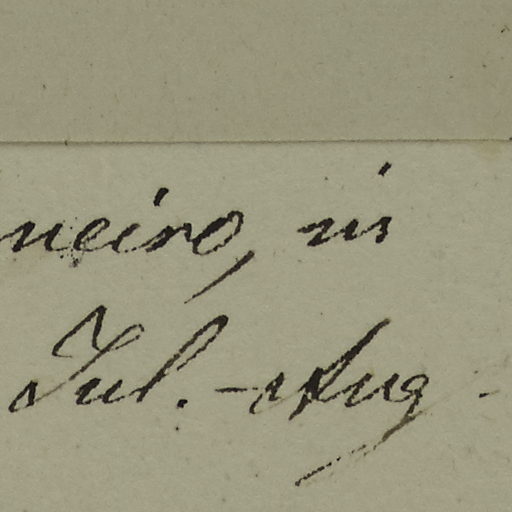 neiro, in
Jul. - Aug.